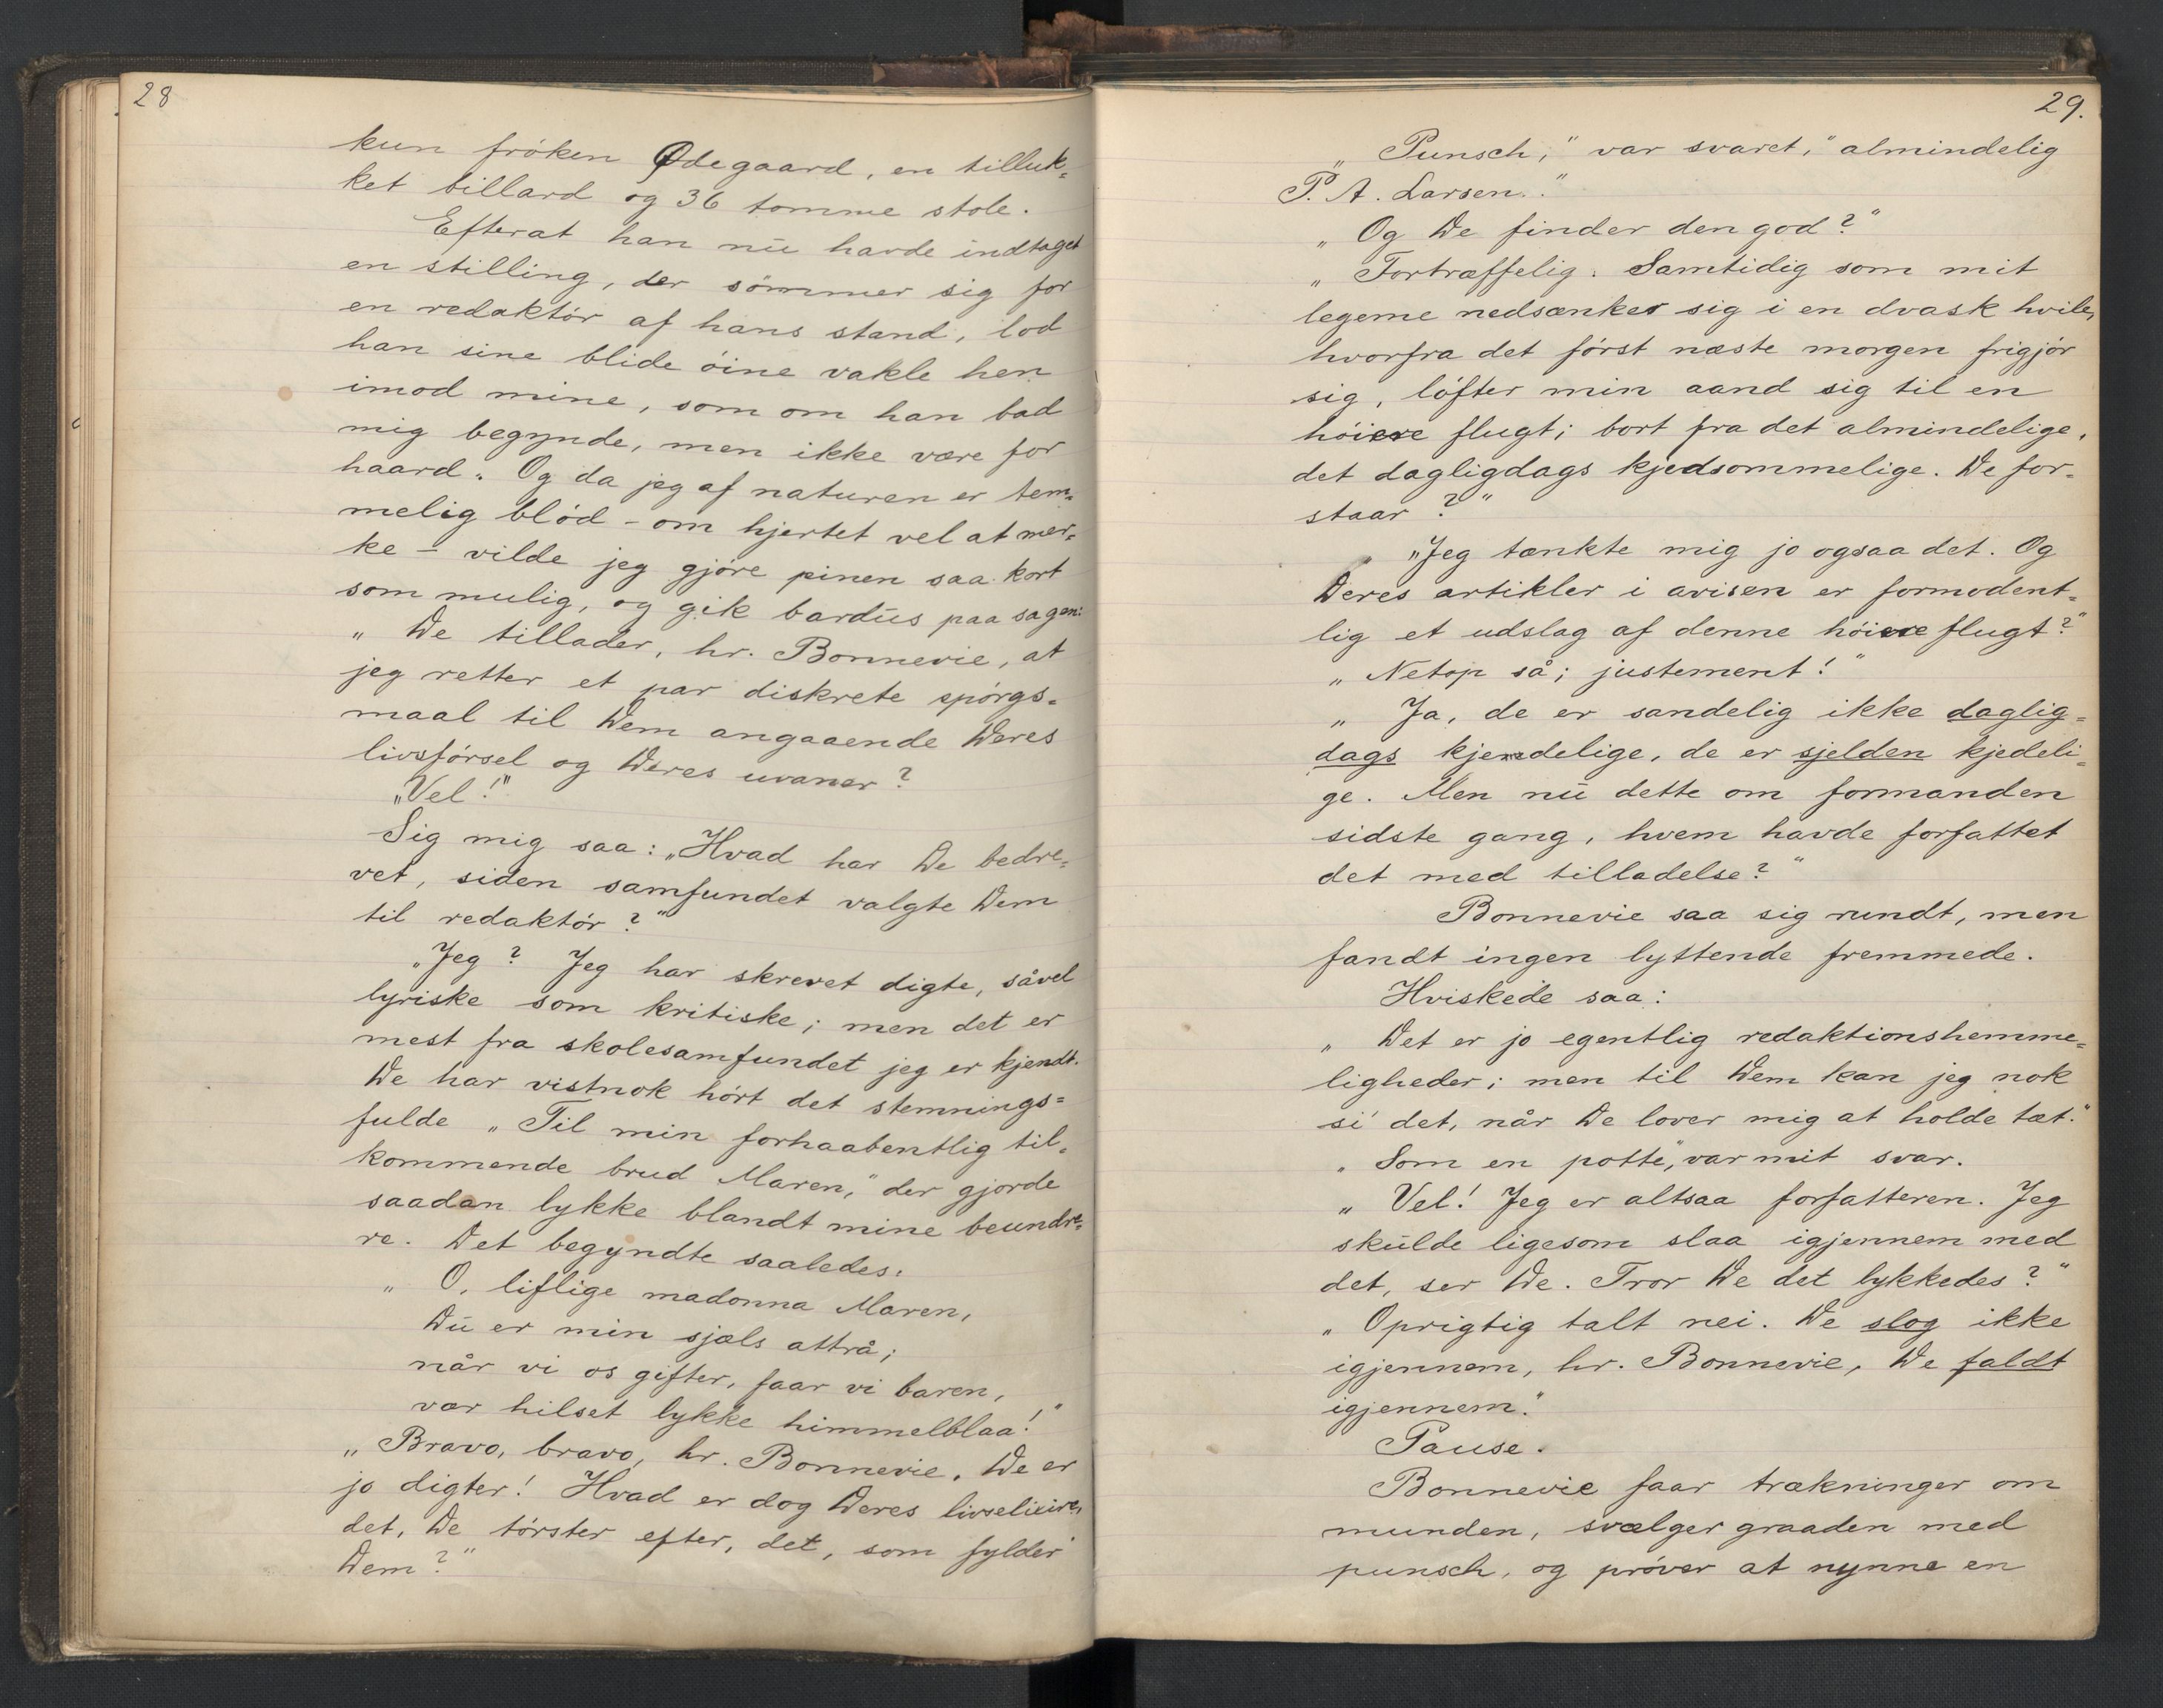 28
kun fröken Ødegaard, en tilluk-
ket billard og 36 tomme stole.
Efterat han nu havde indtaget
en stilling, der sömmer sig for
en redaktör af hans stand, lod
han sine blide öine vakle hen
imod mine, som om han bad
mig begynde, men ikke være for
haard. Og da jeg af naturen er tem-
melig blöd – om hjertet vel at mer-
ke – vilde jeg gjöre pinen saa kort
som mulig, og gik bardus paa sagen:
„De tillader, hr. Bonnevie, at
jeg retter et par diskrete spörgs-
maal til Dem angaaende Deres
livsförsel og Deres uvaner?
„Vel!"
Sig mig saa: „Hvad har De bedre-
vet, siden samfundet valgte Dem
til redaktör?"
„Jeg? Jeg har skrevet digte, såvel
lyriske som kritiske; men det er
mest fra skolesamfundet jeg er kjendt.
De har vistnok hört det stemnings-
fulde „Til min forhaabentlig til-
kommende brud Maren," der gjorde
saadan lykke blandt mine beundre-
re. Det begyndte saaledes:
„O, liflige madonna Maren,
Du er min sjæls attrå;
når vi os gifter, faar vi baren,
vær hilset lykke himmelblaa!"
„Bravo, bravo, hr. Bonnevie. De er
jo digter! Hvad er dog Deres livselixir,
det, De törster efter, det, som fylder
Dem?"
29.
„Punsch," var svaret, "almindelig
P. A. Larsen."
„Og De finder den god?"
„Fortræffelig. Samtidig som mit
legeme nedsænker sig i en dvask hvile,
hvorfra det först næste morgen frigjör
sig, löfter min aand sig til en
höiere flugt; bort fra det almindelige,
det dagligdags kjedsommelige. De for-
staar?"
„Jeg tænkte mig jo ogsaa det. Og
Deres artikler i avisen er formodent-
lig et udslag af denne höiere flugt?"
„Netop så; justement!"
„Ja, de er sandelig ikke daglig-
dags kjendelige, de er sjelden kjedeli-
ge. Men nu dette om formanden
sidste gang, hvem havde forfattet
det med tilladelse?"
Bonnevie saa sig rundt, men
fandt ingen lyttende fremmede.
Hviskede saa:
„Det er jo egentlig redaktionshemme-
ligheder; men til Dem kan jeg nok
si' det, når De lover mig at holde tæt."
„Som en potte", var mit svar.
„Vel! Jeg er altsaa forfatteren. Jeg
skulde ligesom slaa igjennem med
det, ser De. Tror De det lykkedes?"
„Oprigtig talt nei. De slog ikke
igjennem, hr. Bonnevie, De faldt
igjennem."
Pause.
Bonnevie faar trækninger om
munden, svælger graaden med
punsch, og pröver at nynne en